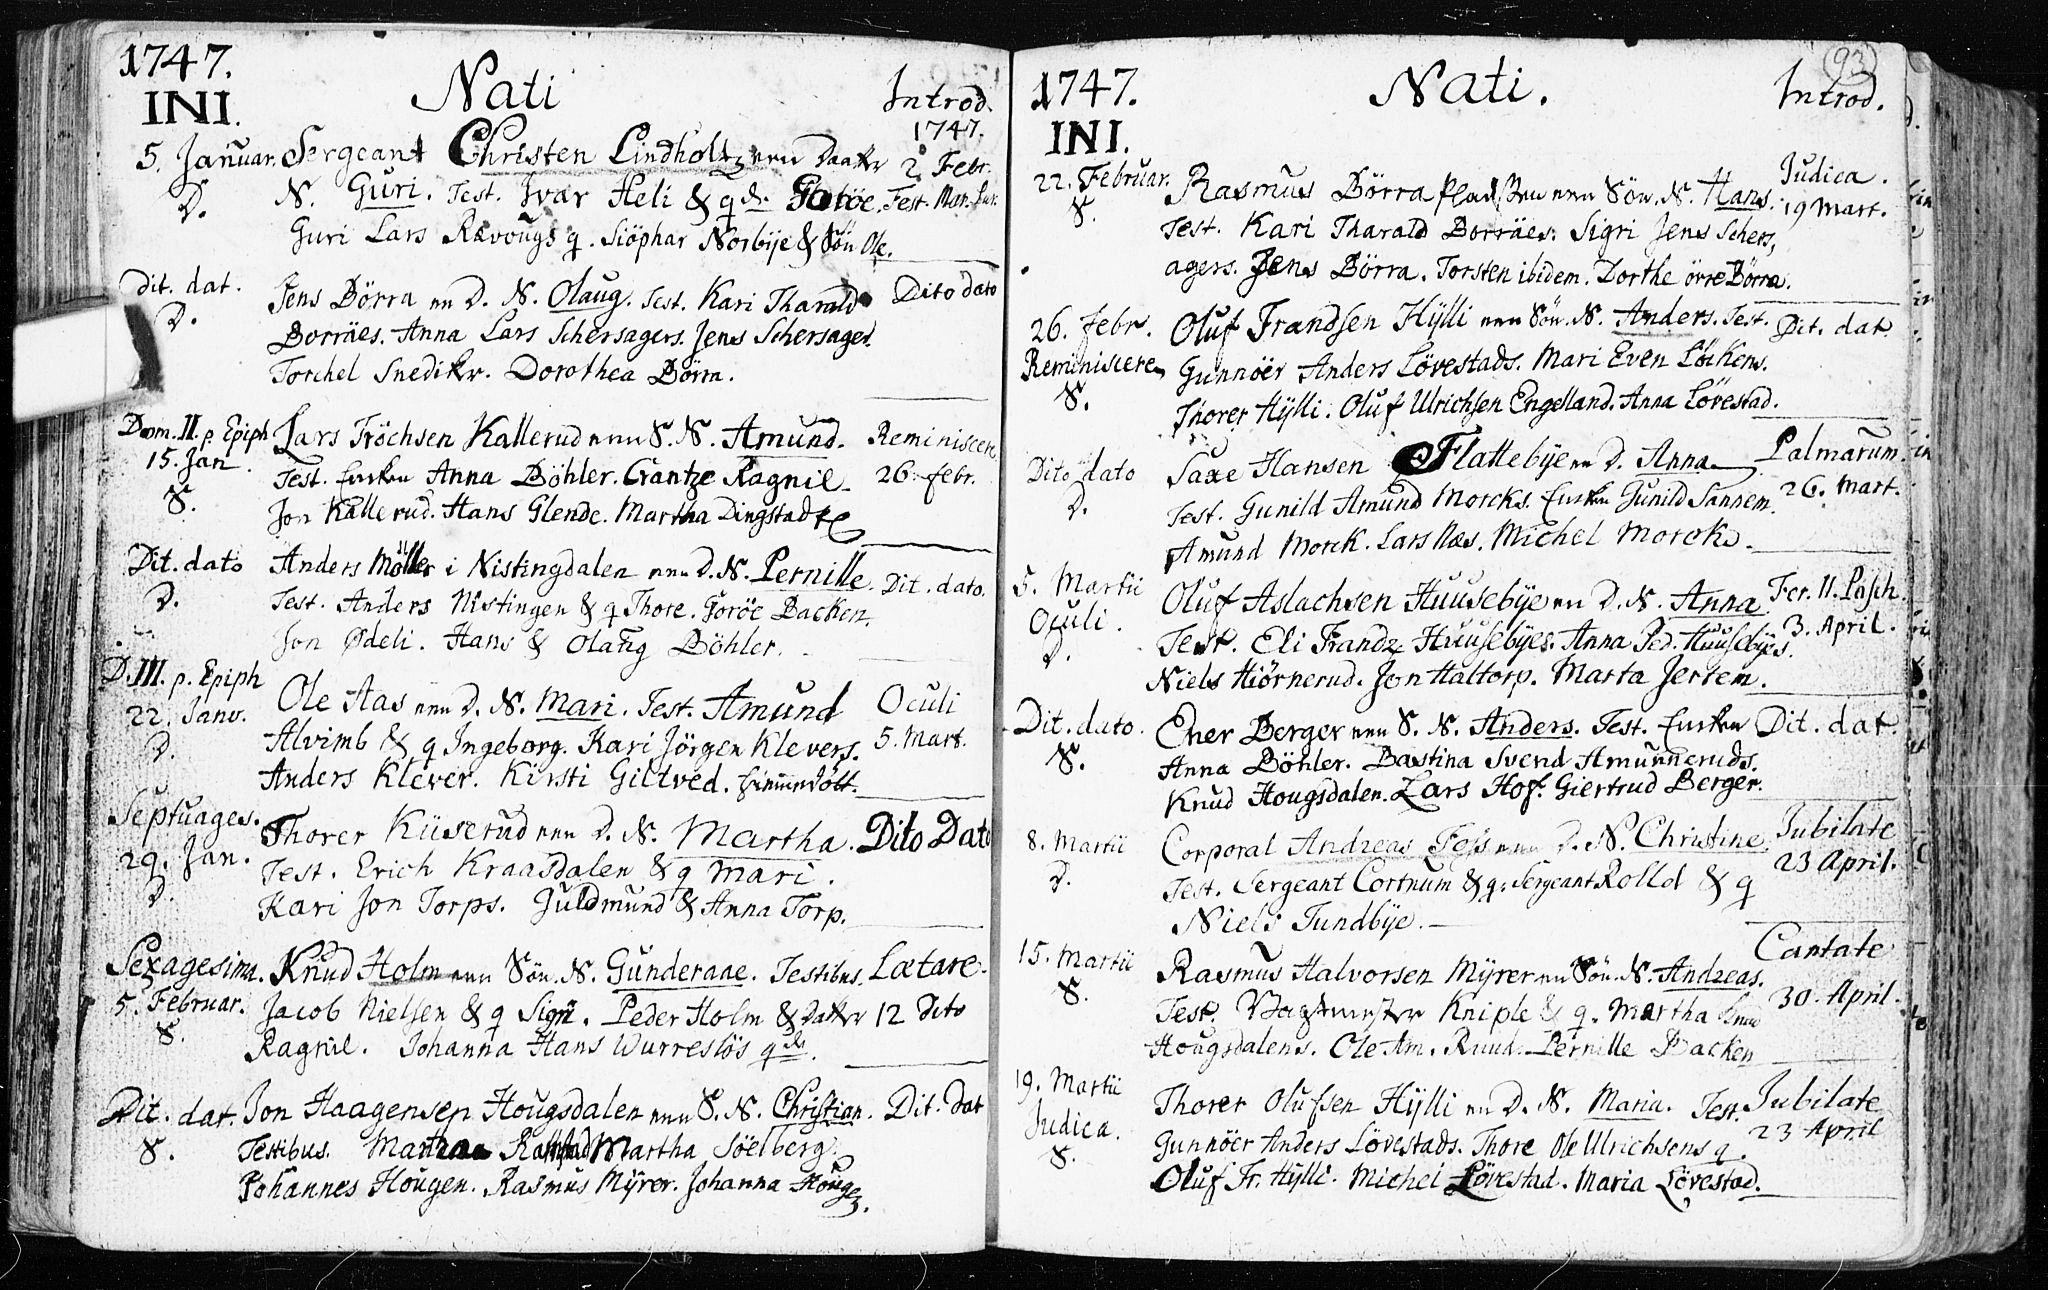 1747.
INI.
Nati
Introd.
1747.
5. Januar. Sergeant Christen Lindholtz een Daatter 2. Febr.
D. N. Guri. Test. Ivar Heli & q. Fest. Mar. Pur.
Guri Lars Rævougs q. Siöphar Norbije & Sön Ole.
Dit. dat. Jens Börra en D. N. Olaug. Test. Kari Tharald Dito dato
D. Borräes. Anna Lars Schersagers. Jens Schersager.
Torchel Snedikr. Dorothea Börra.
Dom. II. p. Epiph Lars Tröchsen Kallerud een S. N. Amund. Reminiscere
15. Jan. Test. Anna Böhler. Crantze Ragnil. 26. febr.
S. Jon Kallerud. Hans Glende. Martha Dingstad
Dit. dato Anders Möller i Nistingdalen een D. N. Pernille. Dit. dato.
D. Test. Anders Nistingen & q Thore. Goröe Backen.
Jon Ødeli. Hans & Olaug Böhler.
D. III. p. Epiph Ole Aas een D. N. Mari. Test. Amund Oculi
22. Janv. Alvimb & q Ingeborg. Kari Jörgen Klevers. 5. Mart.
D. Anders Klever. Kirsti Giltved.
Septuages. Thorer Küserud een D. N. Martha. Dito Dato
29. Jan. Test. Erich Kraasdalen & q Mari.
D. Kari Jon Torps. Juldmund & Anna Torp.
Sexagesima. Knud Holm een Sön. N. Gunderane. Testibus. Lætare.
5. Februar. Jacob Nielsen & q Sigri. Peder Holm & Datter 12 Dito
S. Ragnil. Johanna Hans Wurreslös q
Dit. dat. Jon Haagensen Hougsdalen een S. N. Christian. Dit. dat
S. Testibus. Martha Söelberg.
Johannes Hougen. Rasmus Myrer. Johanna Houge.
93
1747.
INI.
Nati.
Introd.
22. Februar. Rasmus Börra een Sön. N. Hans. Judica.
S. Test. Kari Tharald Borräes. Sigri Jens Schers, 19 Mart.
agers. Jens Börra. Torsten ibidem. Dorthe övre Börra.
26. febr. Oluf Frandsen Hÿlli een Sön. N. Anders. Test. Dit. dat.
Reminiscere Gunnöer Anders Lövestads. Mari Even Löckens.
S. Thorer Hÿlli. Oluf Ulrichsen Engelland. Anna Lövestad.
Dito dato Saxe Hansen Flattebije en D. Anna Palmarum
D. Test. Gunild Amund Morcks. Gunild Sannem. 26. Mart.
Amund Morck. Lars Næs. Michel Morck.
5. Martii Oluf Aslachsen Huusebije en D. N. Anna Fer. II. Pasch.
Oculi. Test. Eli Frandz Huusebijes. Anna Ped. Huusebijes. 3. April.
D. Niels Hiörnerud. Jon Haltorp. Marta Jerrem.
Dit. dato. Ener Berger een S. N. Anders. Test. Dit. dat.
S. Anna Böhler. Bastina Svend Amunneruds.
Knud Hougsdalen. Lars Hof. Giertrud Berger.
8. Martii Corporal Andreas een D. N. Christine. Jubilate
D. Test. Sergeant Cortnum & q. Sergeant Rolld & q 23 April.
Niels Tundbije.
15. Martii Rasmus Halvorsen Mÿrer en Sön. N. Andreas. Cantate
S. Test. Kniple & q. Martha Knud 30. April.
Hougsdalens. Ole Am. Ruud. Pernille Backen
19. Martii Thorer Olufsen Hÿlli en D. N. Maria. Test. Jubilate
Judica. Gunnöer Anders Lövestads. Thore Ole Ulrichsens q. 23 April
S. Oluf Fr. Hÿlli. Michel Lövestad. Maria Lövestad.